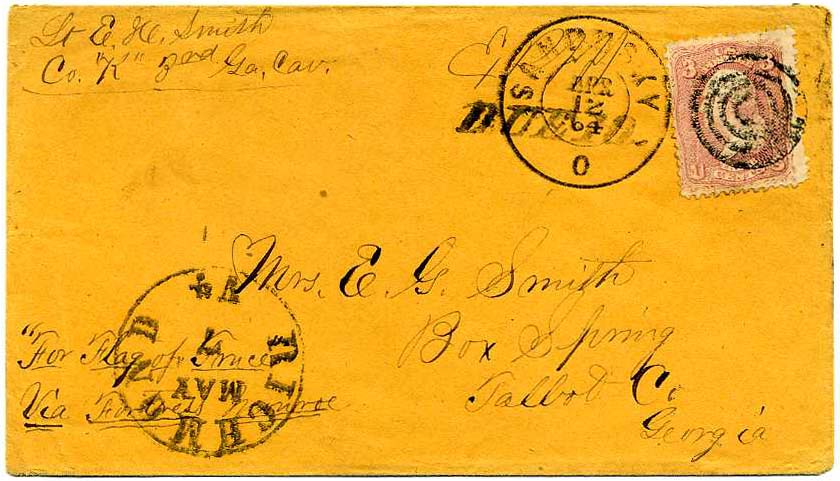 Lt E. H. Smith
Co. "K" 2nd Ga. Cav.
SANDUSKY O
APR
12
64
DUE
3 3
U CENTS
Mrs. E. G. Smith
Box Spring
Talbot Co
Georgia
"For Flag of Truce
Via Fortress Monroe
RICHMOND VA
MAY